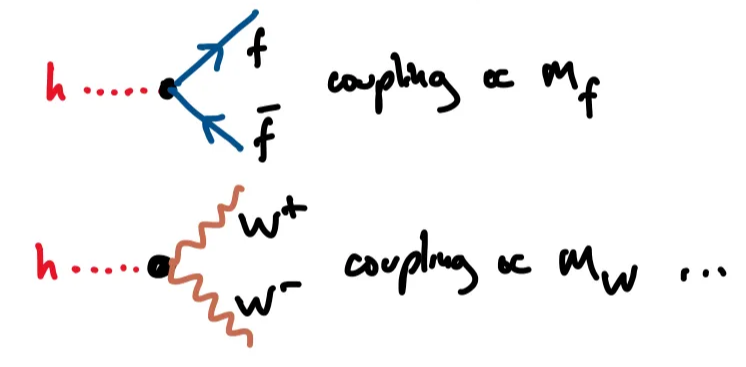 h f f̄ coupling ∝ m_f
h W⁺ W⁻ coupling ∝ m_W ...